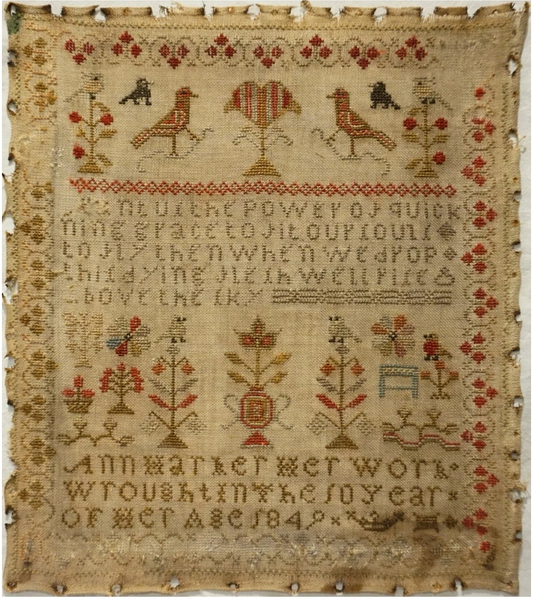 Grant us the Power of quick
ning grace to fit our souls
to fly then when we drop
this dying flesh well rise
above the sky
Ann Harker Her Work
wrought in The 10 year
of Her Age 1849